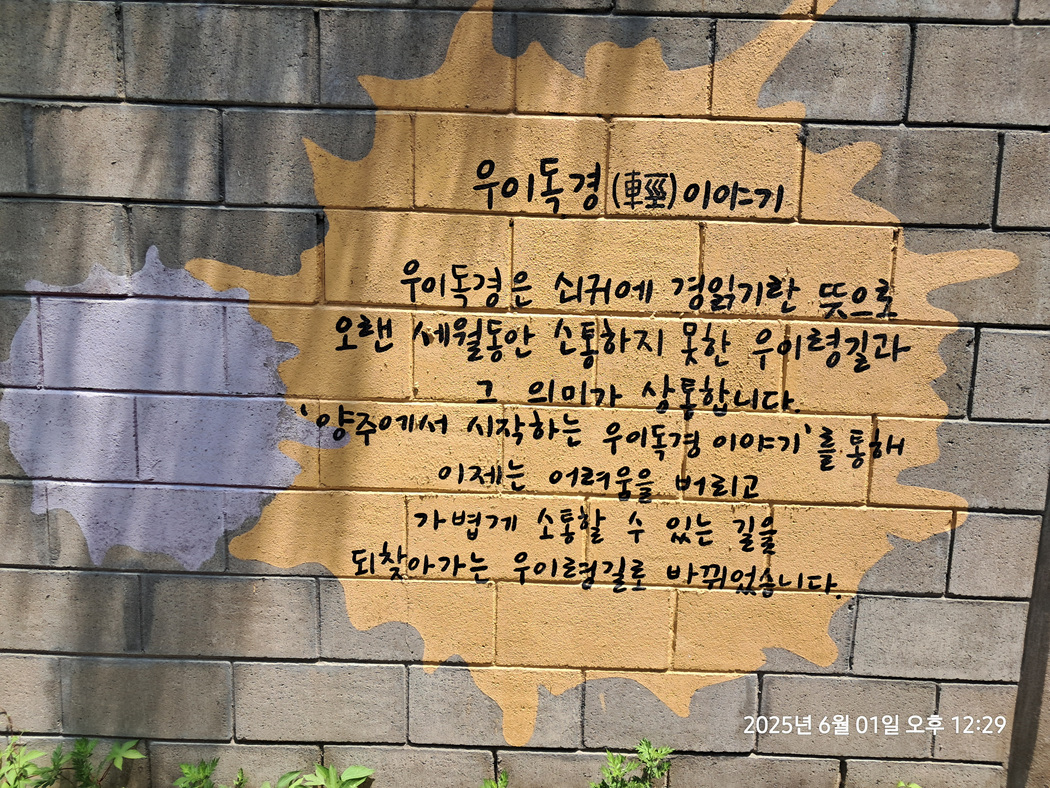 우이독경(輕)이야기
우이독경은 쇠귀에 경읽기란 뜻으로
오랜 세월동안 소통하지 못한 우이령길과
그 의미가 상통합니다.
'양주에서 시작하는 우이독경 이야기'를 통해
이제는 어려움을 버리고
가볍게 소통할 수 있는 길을
되찾아가는 우이령길로 바뀌었습니다.
2025년 6월 01일 오후 12:29